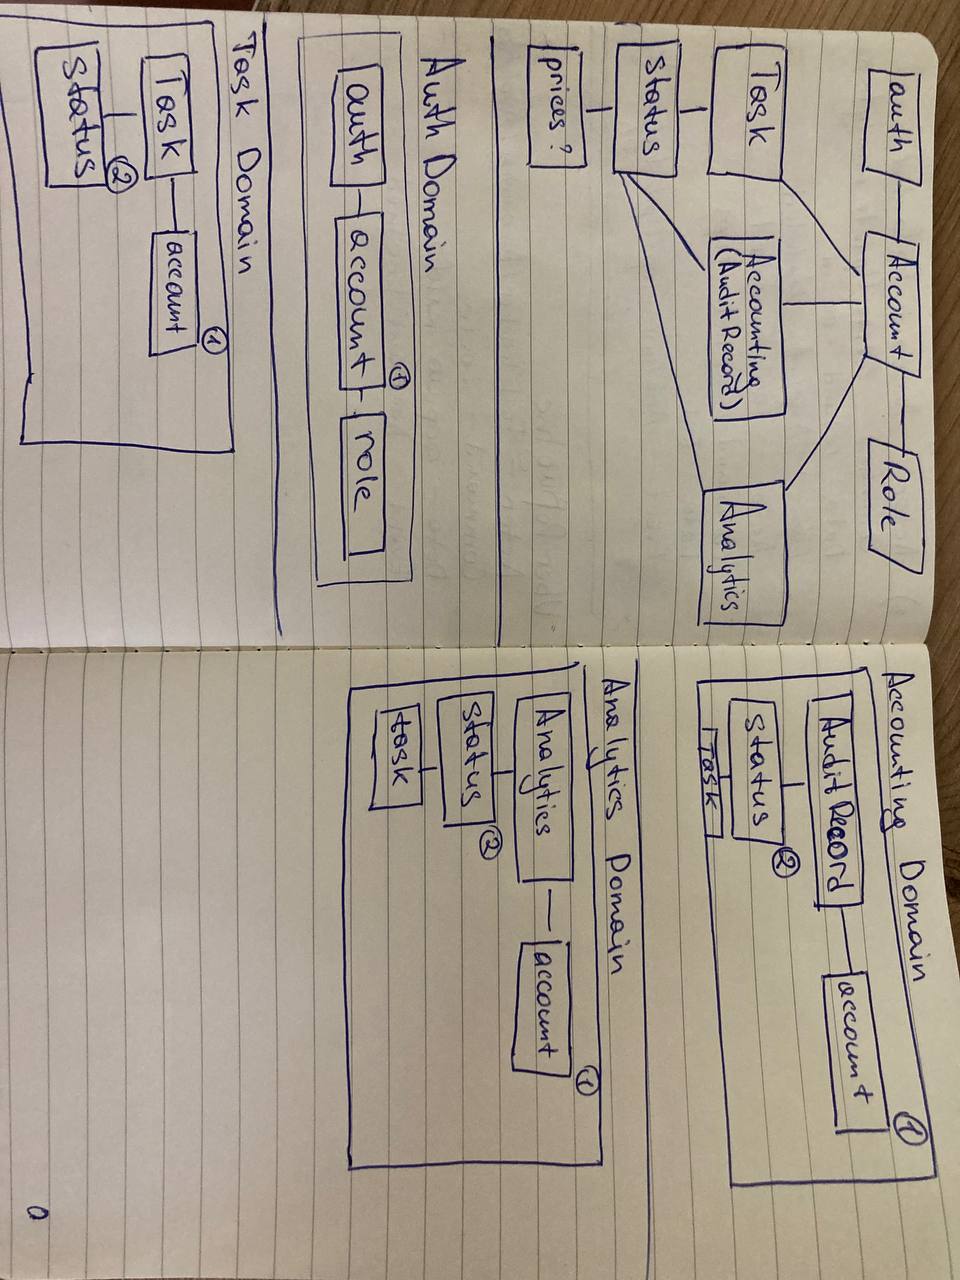 auth
Account
Role
Task
Accounting
(Audit Record)
Analytics
status
prices?
Auth Domain
①
auth
account
role
Task Domain
①
Task
account
②
status
Accounting Domain
①
Audit Record
account
②
status
Task
Analytics Domain
①
Analytics
account
②
status
task
0